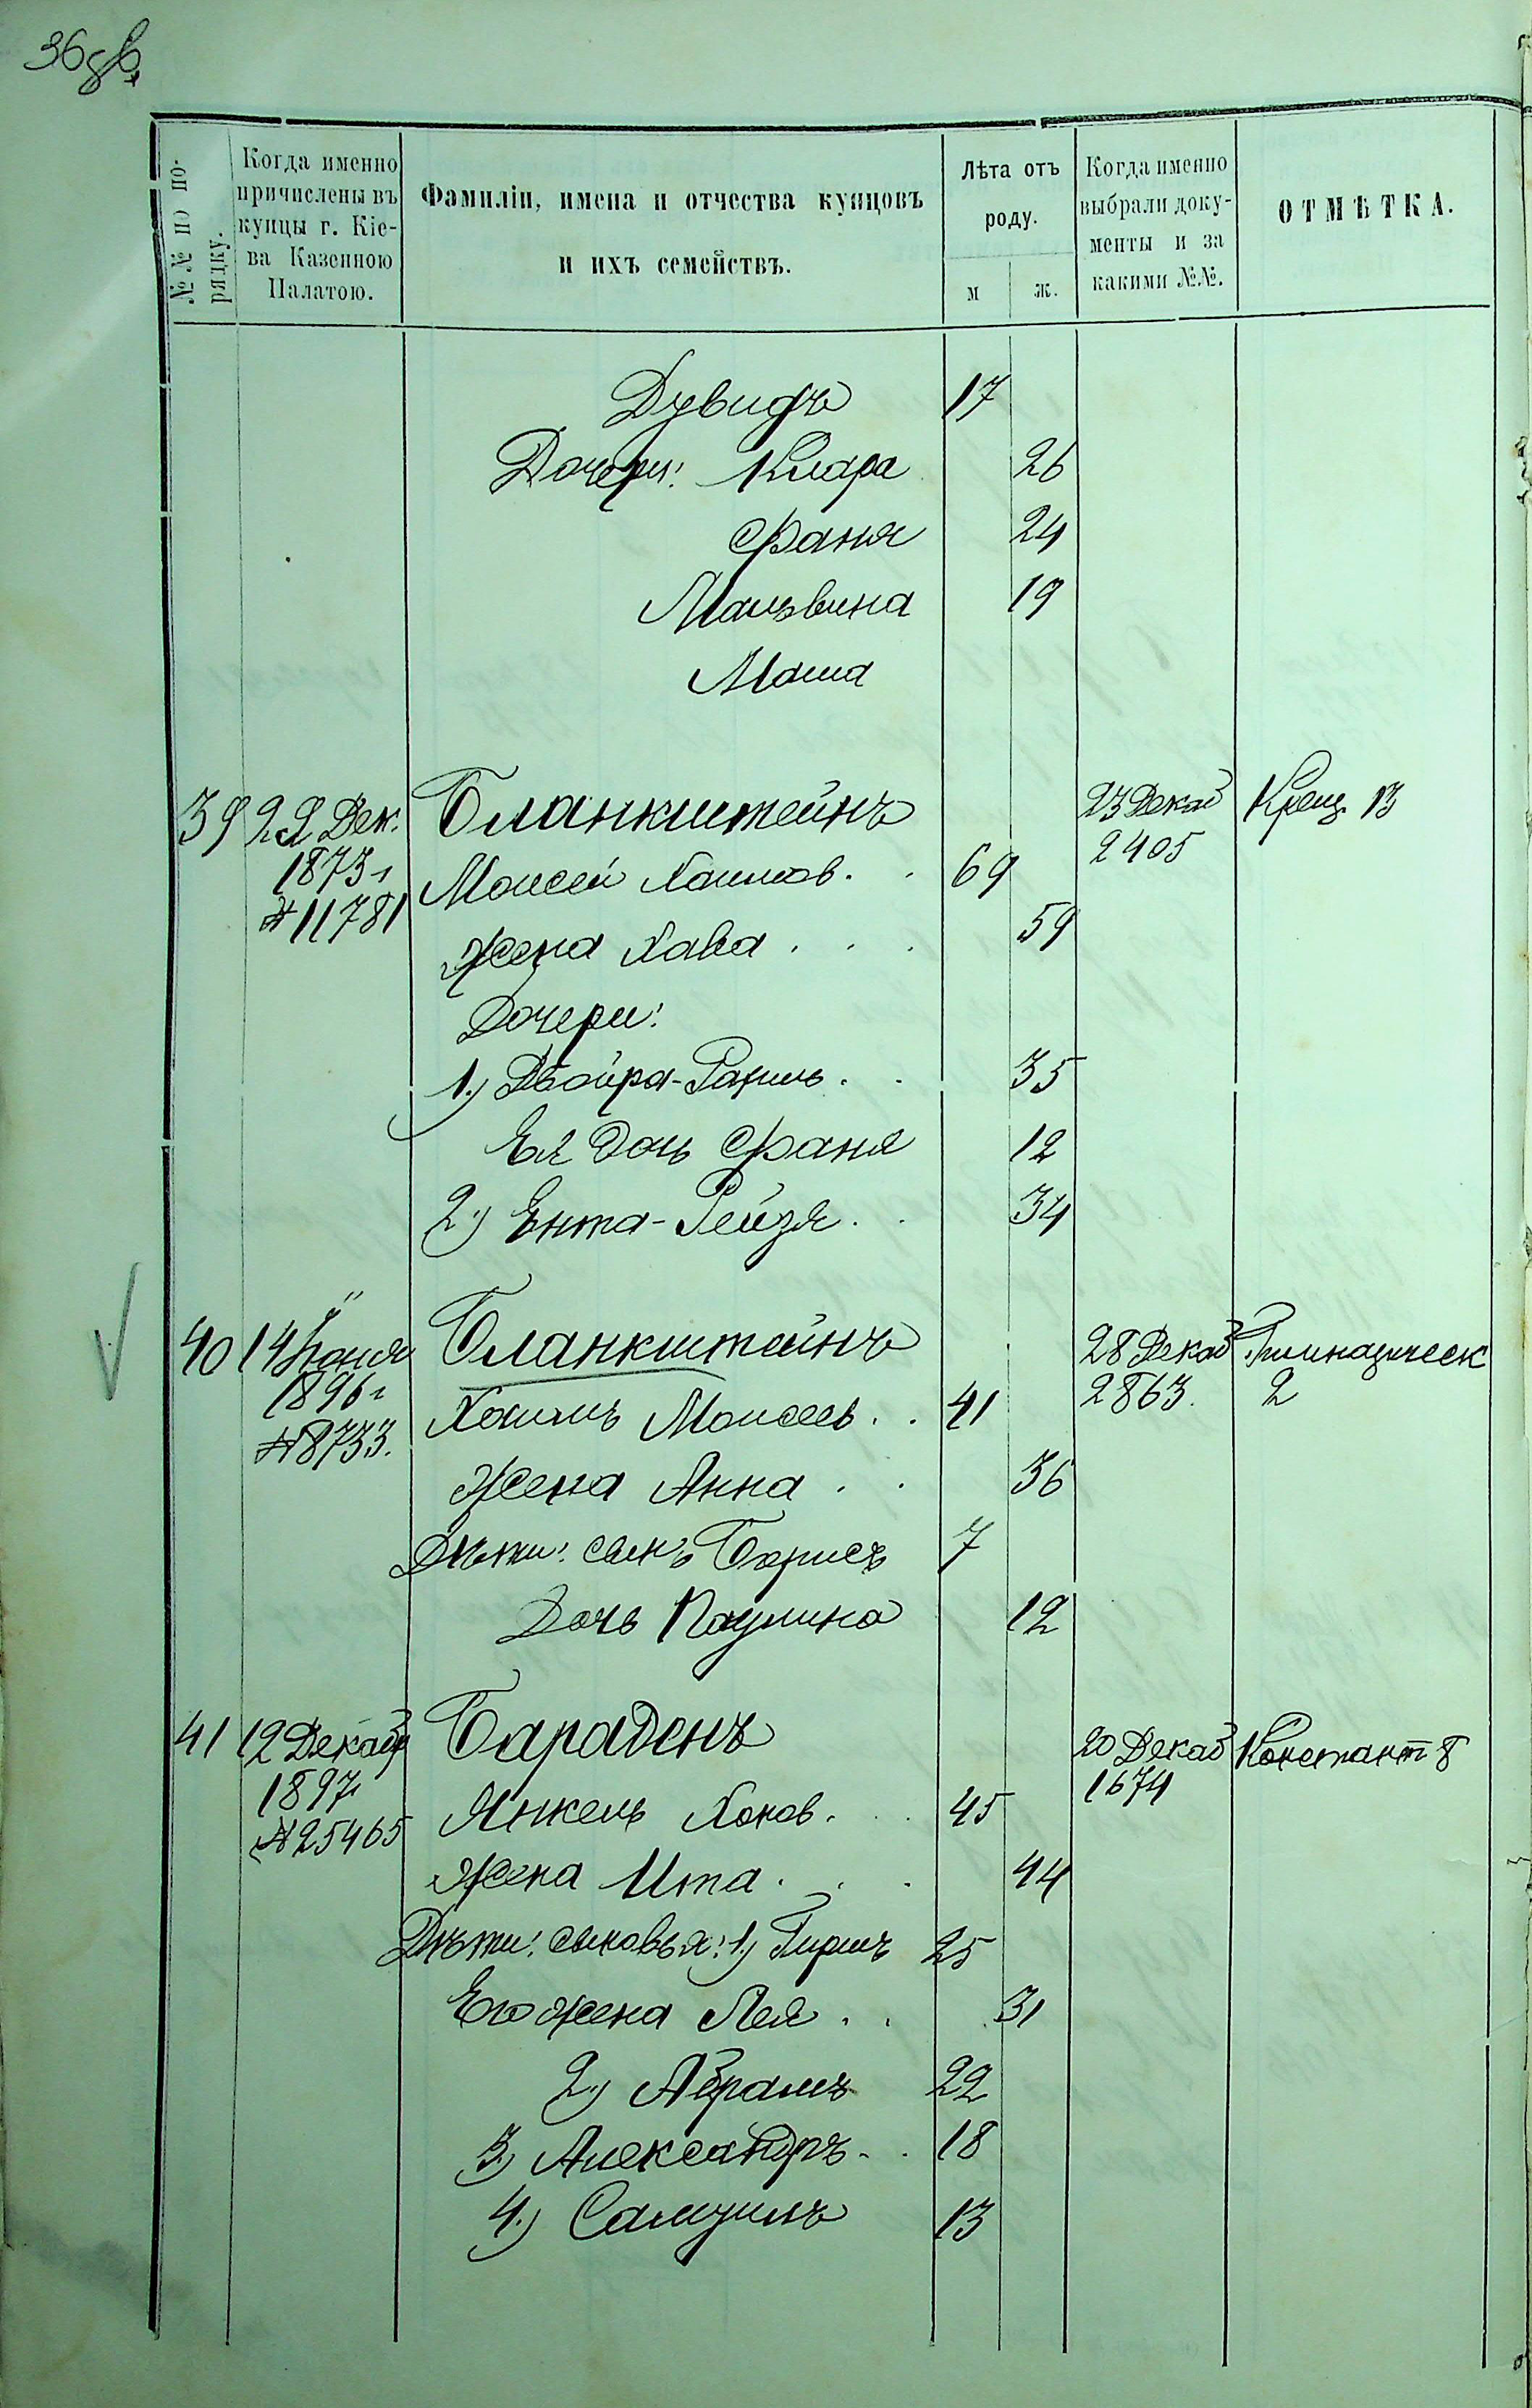 36 об.
№№ по по-
рядку.
Когда именно
причислены въ
купцы г. Кіе-
ва Казенною
Палатою.
Фамиліи, имена и отчества купцовъ
и ихъ семействъ.
Лѣта отъ
роду.
м ж.
Когда именно
выбрали доку-
менты и за
какими №№.
ОТМѢТКА.
Дувидъ 17
Дочери: Клара 26
Фаня 24
Мальвина 19
Маша
39 22 Дек. Бланкштейнъ 23 Декаб Крещ 13
1873 г 2405
№ 11781 Моисей Хаимов. 69
Жена Хава 59
Дочери:
1.) Двойра-Рахиль 35
Ея дочь Фаня 12
2.) Ента-Рейзя 34
40 14 Іюня Бланкштейнъ 28 Декаб Гимназическ
1896 г 2863. 2
№ 8733. Хаимъ Моисеев 41
Жена Анна 36
Дѣти: сынъ Борисъ 7
Дочь Паулина 12
41 12 Декабр Бараденъ 20 Декаб Констант 8
1897 г 1674
№ 25465 Янкель Хонов. 45
Жена Ита 44
Дѣти: сыновья: 1.) Гиршъ 25
Его жена Лея 31
2.) Абрамъ 22
3.) Александръ 18
4.) Самуилъ 13